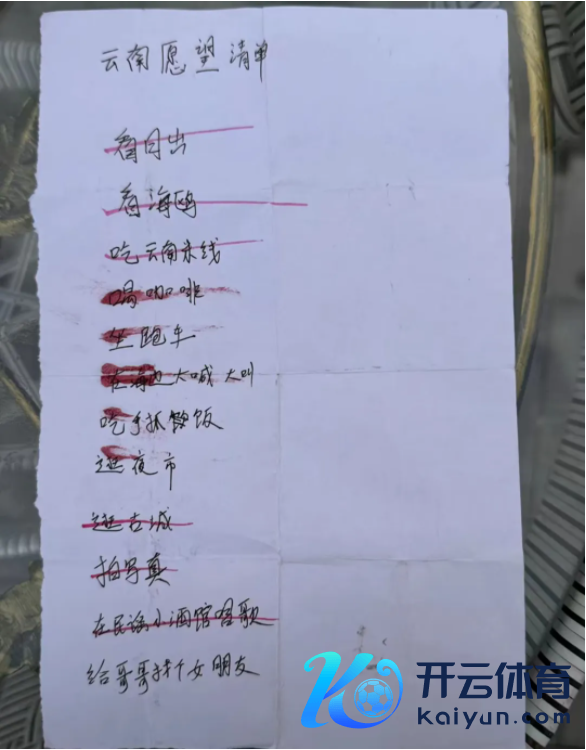 云南愿望清单
看日出
看海鸥
吃云南米线
喝咖啡
坐跑车
在海边大喊大叫
吃手抓饭
逛夜市
逛古城
拍写真
在民谣小酒馆唱歌
给哥哥找个女朋友
开云体育
kaiyun.com